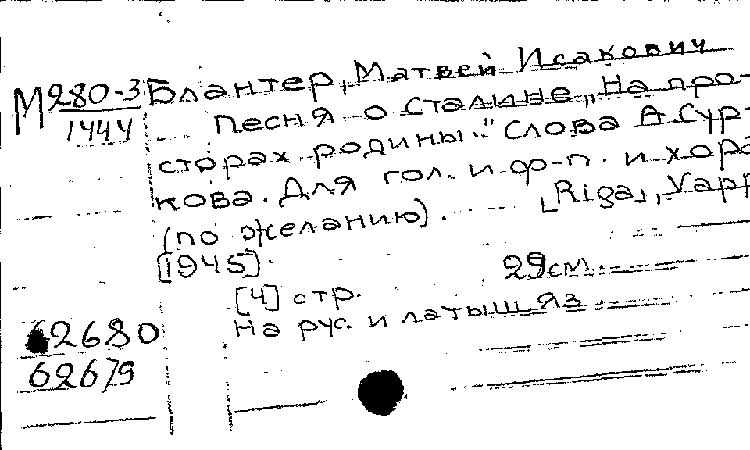 М280-3
1444
Блантер, Матвей Исакович
Песня о Сталине „На про-
сторах родины." Слова А. Сур-
кова. Для гол. и ф-п. и хора
(по желанию). [Riga], Vapp
[1945].
[4] стр. 29см.
На рус. и латыш яз
62680
62679